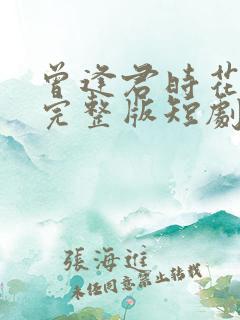 曾逢君時花
完整版短劇
張海進
未經同意禁止轉載